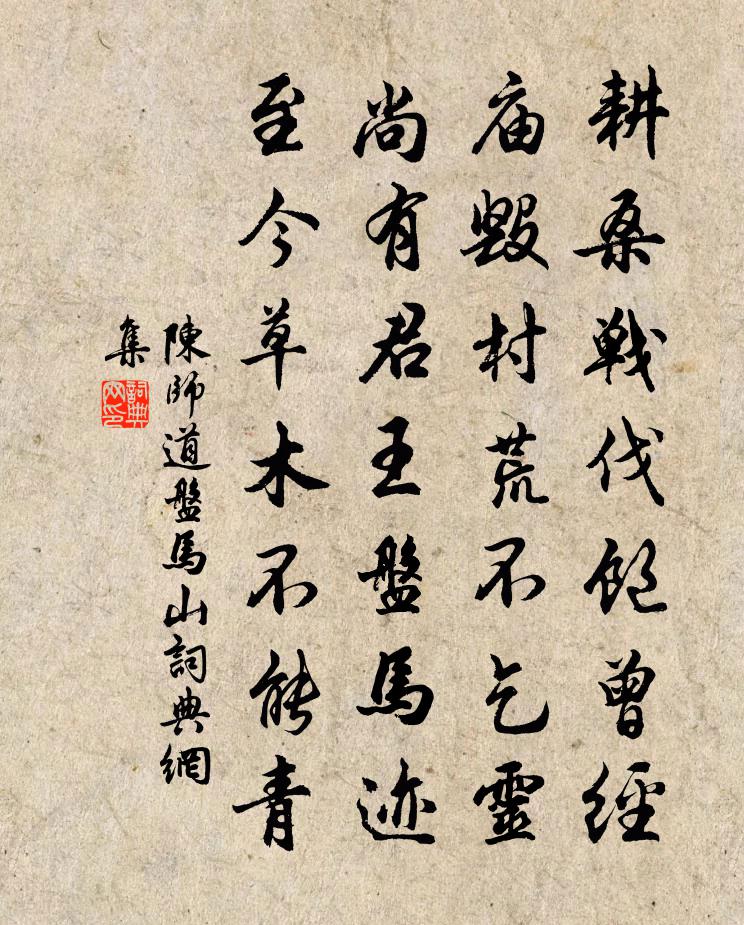 耕桑戦伐飽曾經
庙毁村荒不乞靈
尚有君王盤馬迹
至今草木不能青
陳師道盤馬山詞典網
集
詞典网印